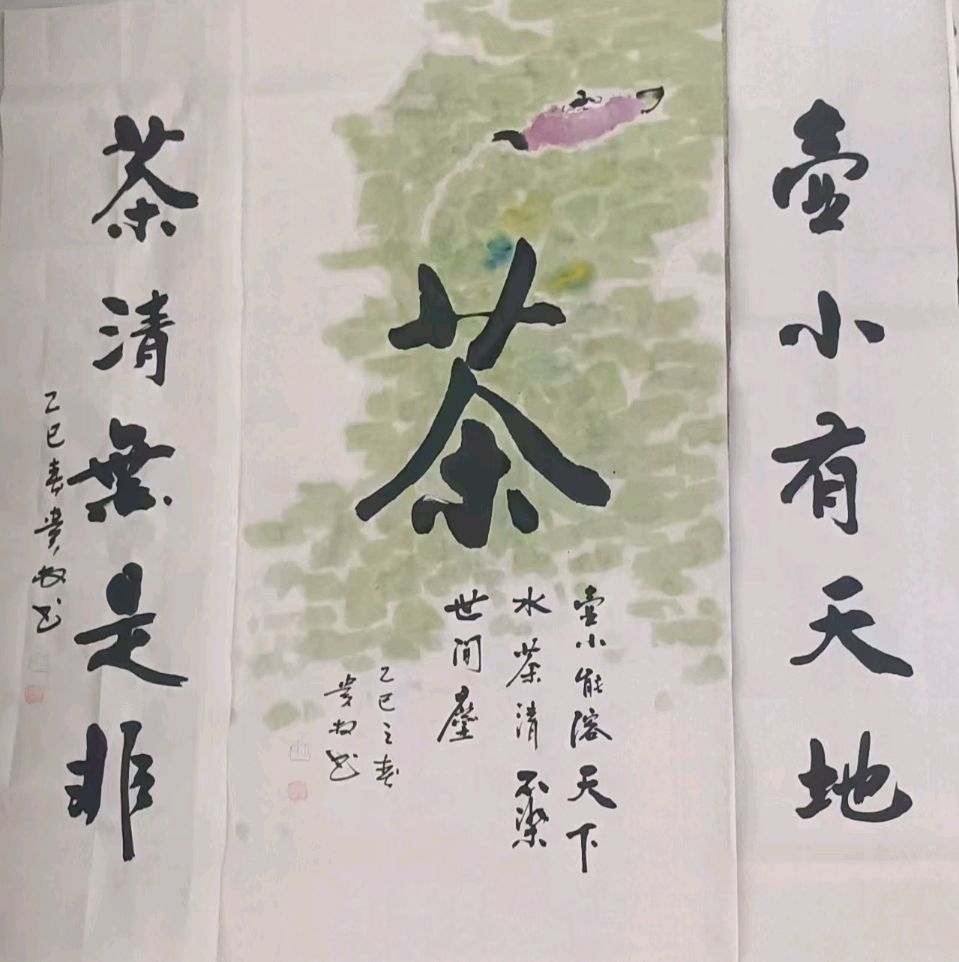 壶小有天地
茶
壶小能溶天下
水茶清不染
世间尘
乙巳立春
贵牧书
茶清無是非
乙巳春贵牧书